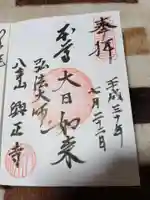 奉拝
平成三十年
七月二十二日
本尊
大日如来
弘法大師
八事山
興正寺